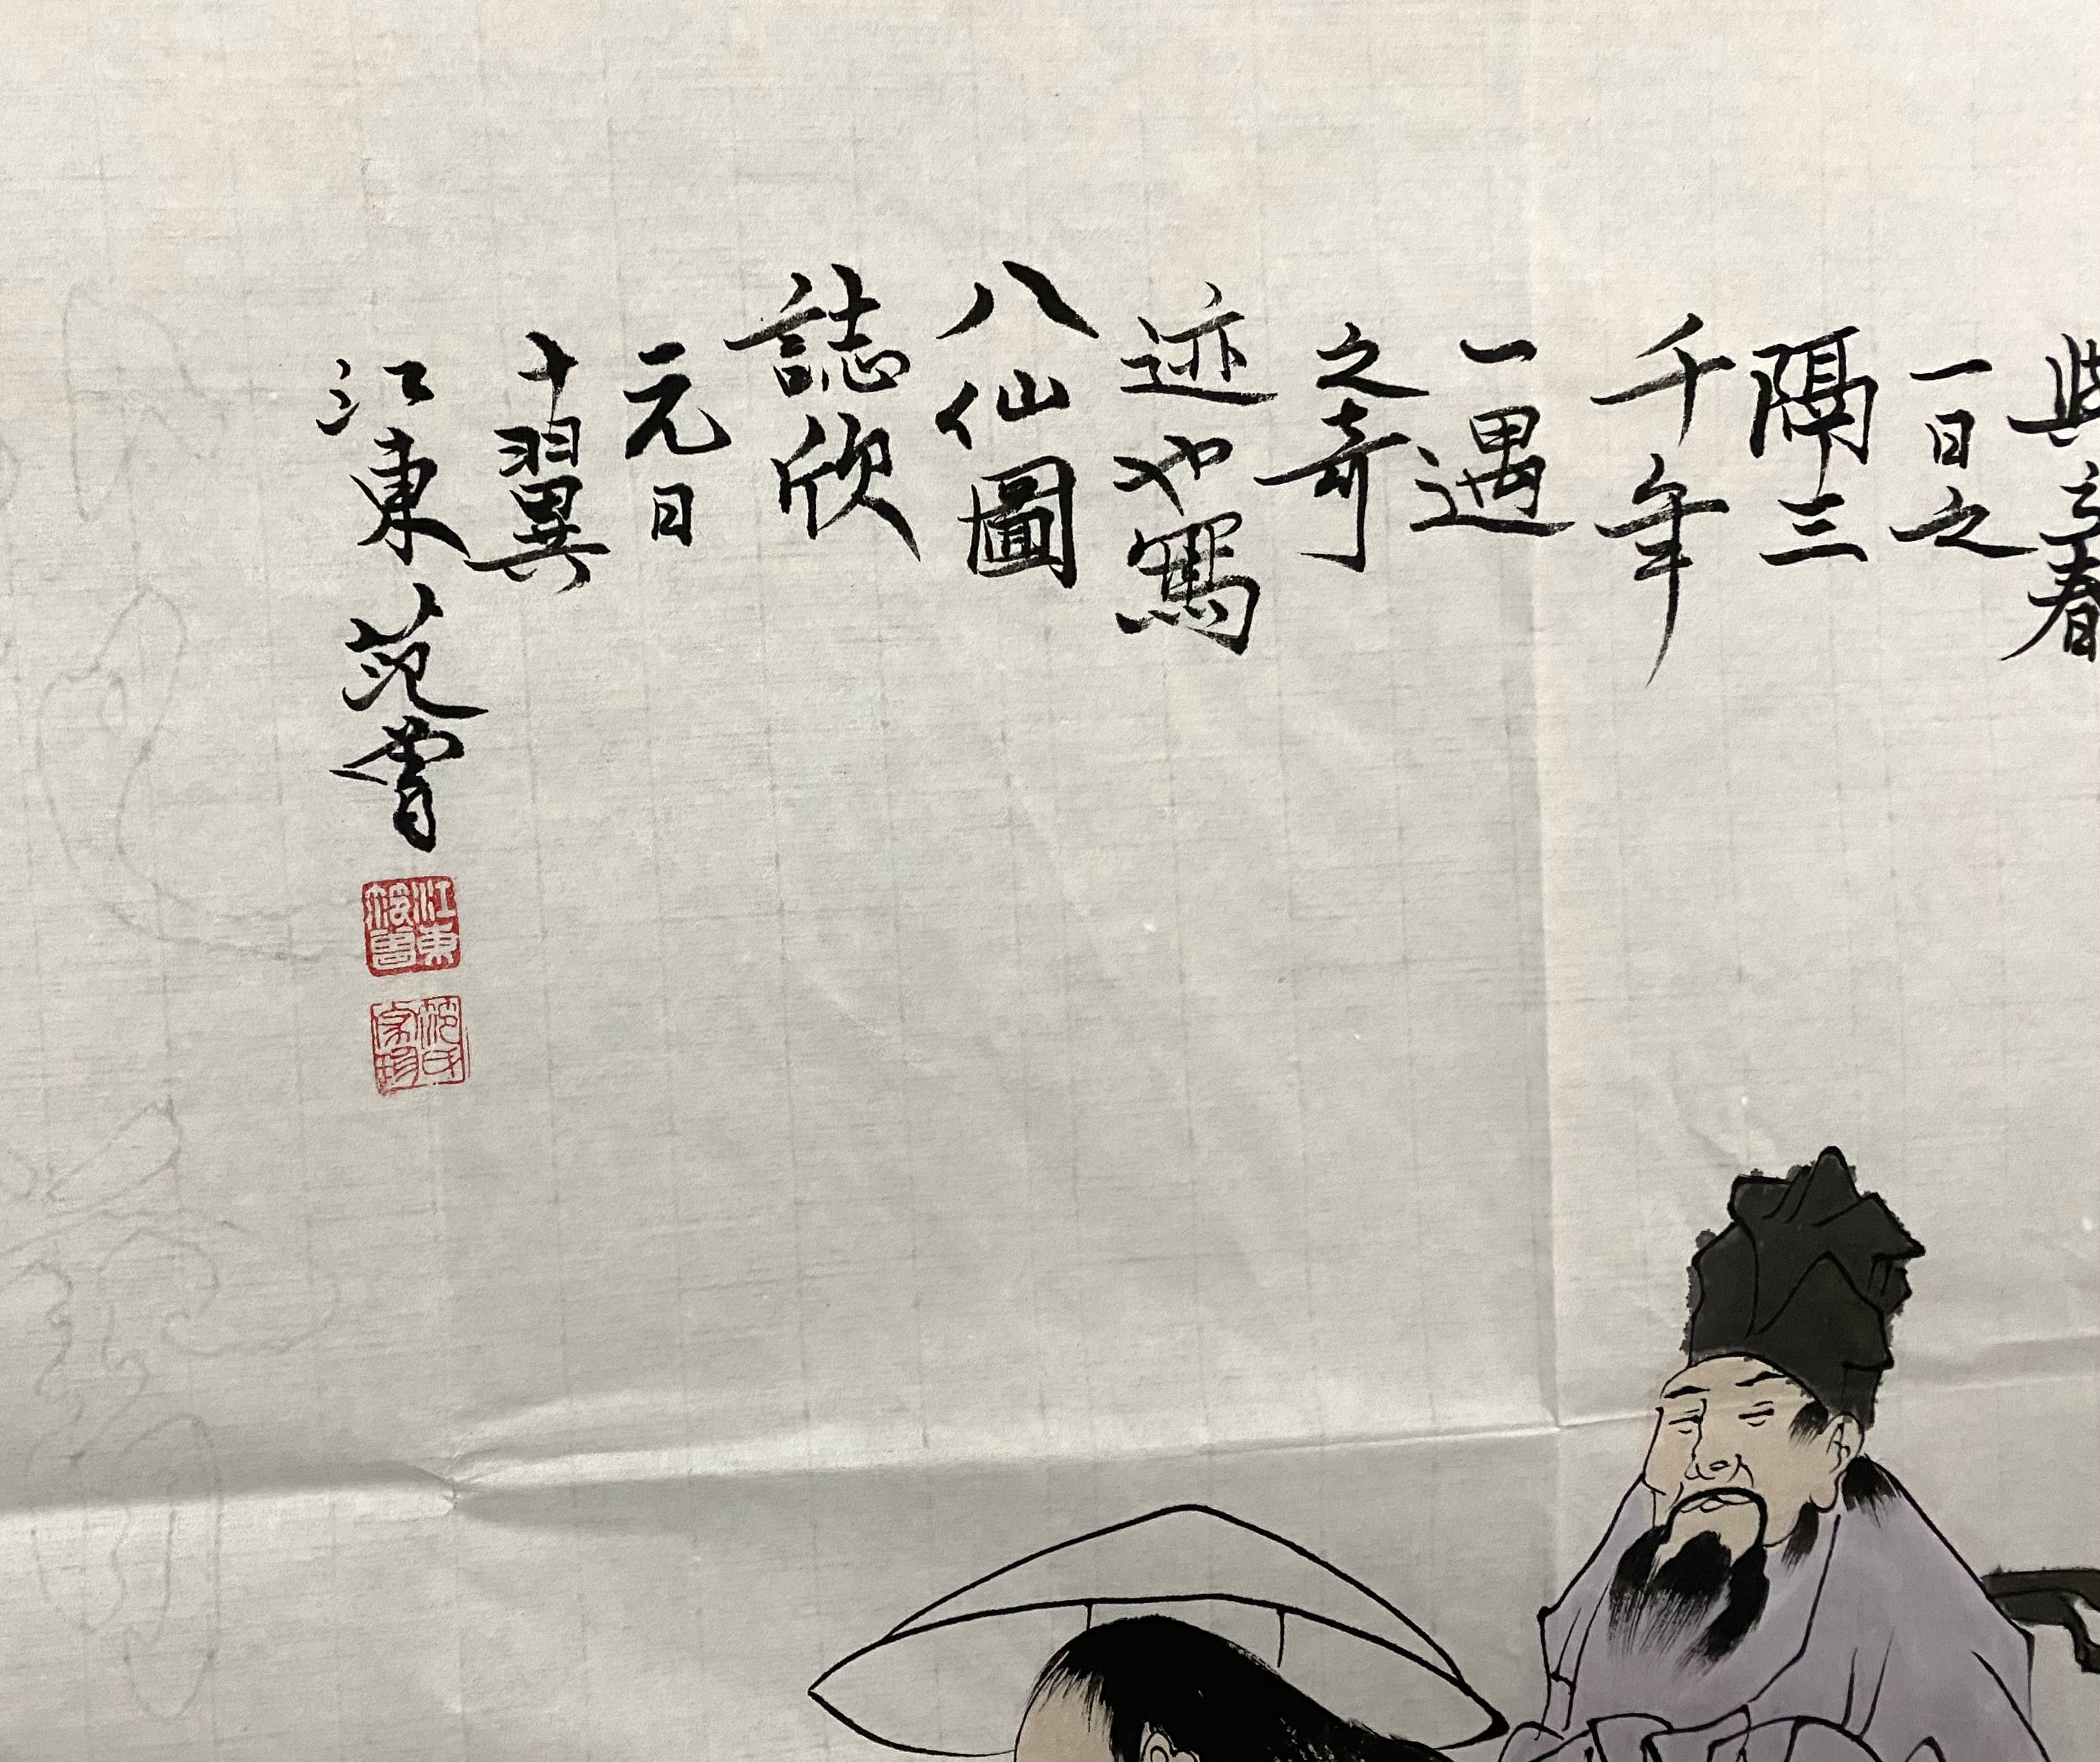 與立春
一日之
隔三
千年
一遇
之奇
迹也寫
八仙圖
誌欣
元日
十翼
江東范曾
江東
范曾